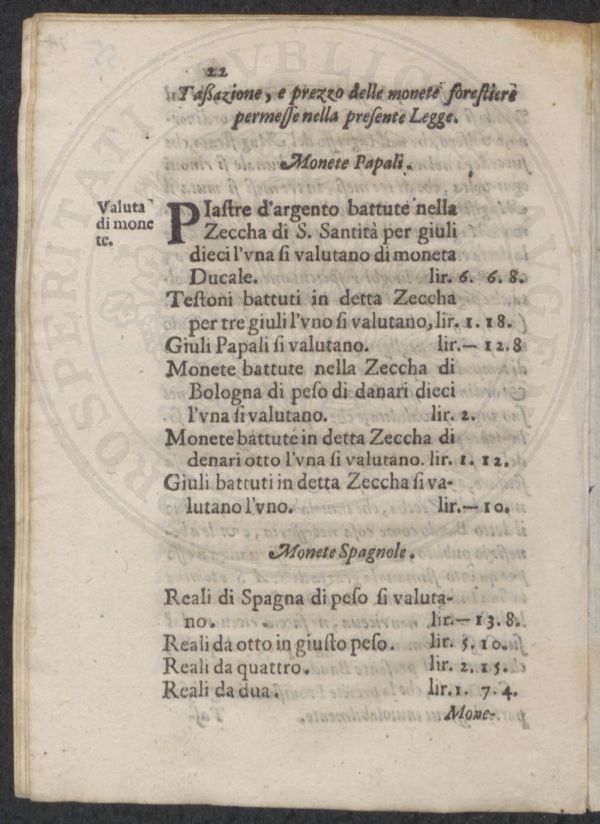 22
Taßazione, e prezzo delle monete forestiere
permesse nella presente Legge.
Monete Papali.
Valuta
di mone
te.
PIastre d'argento battute nella
Zeccha di S. Santità per giuli
dieci l'vna si valutano di moneta
Ducale. lir. 6. 6. 8.
Testoni battuti in detta Zeccha
per tre giuli l'vno si valutano, lir. 1. 18.
Giuli Papali si valutano. lir.— 12.8
Monete battute nella Zeccha di
Bologna di peso di danari dieci
l'vna si valutano. lir. 2.
Monete battute in detta Zeccha di
denari otto l'vna si valutano. lir. 1. 12.
Giuli battuti in detta Zeccha si va-
lutano l'vno. lir.— 10.
Monete Spagnole.
Reali di Spagna di peso si valuta-
no. lir.— 13. 8.
Reali da otto in giusto peso. lir. 5. 10.
Reali da quattro. lir. 2. 15.
Reali da dua. lir. 1. 7. 4.
Mone-